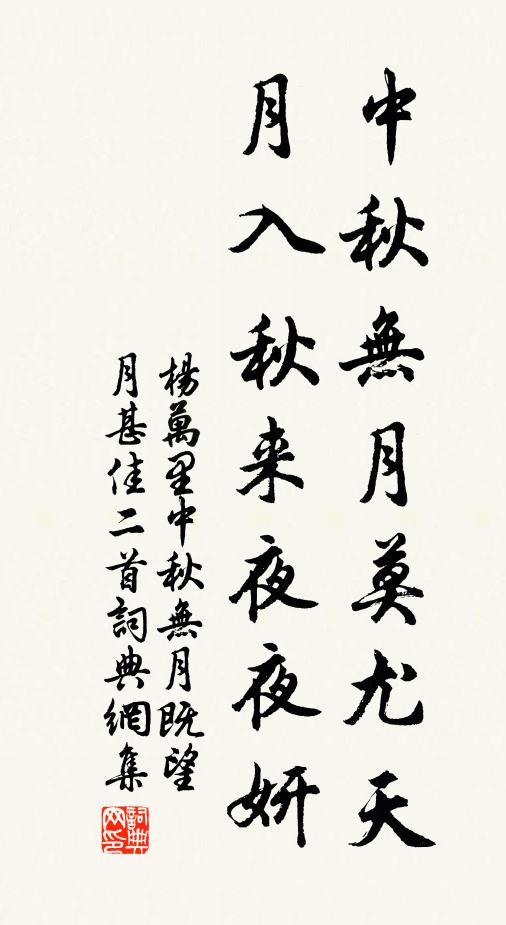 中秋無月莫尤天
月入秋来夜夜妍
楊萬里中秋無月既望
月甚佳二首詞典網集
詞典网印